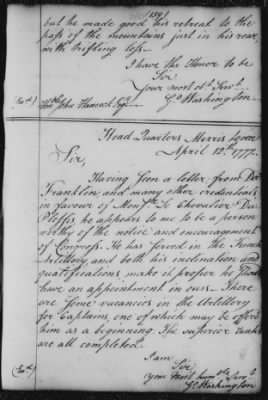 (159)
but he made good his retreat to the
pass of the mountains just in his rear,
with trifling loss.
I have the Honor to be
Sir
Your most Obt. Servt.
Go. Washington
(To the)
Honble. John Hancock Esqr.
Head Quarters Morris Town
April 12th. 1777.
Sir,
Having seen a letter from Doctr.
Franklin, and many other credentials,
in favour of Monsr. Le Chevalier Du
Plessis, he appears to me to be a person
worthy of the notice and encouragement
of Congress. He has served in the French
Artillery, and both his inclination and
qualifications, make it proper he should
have an appointment in ours. There
are some vacancies in the Artillery
for Captains, one of which may be offered
him as a beginning. The superior ranks
are all completed.
I am
Sir
Your most humble Servt.
Go. Washington